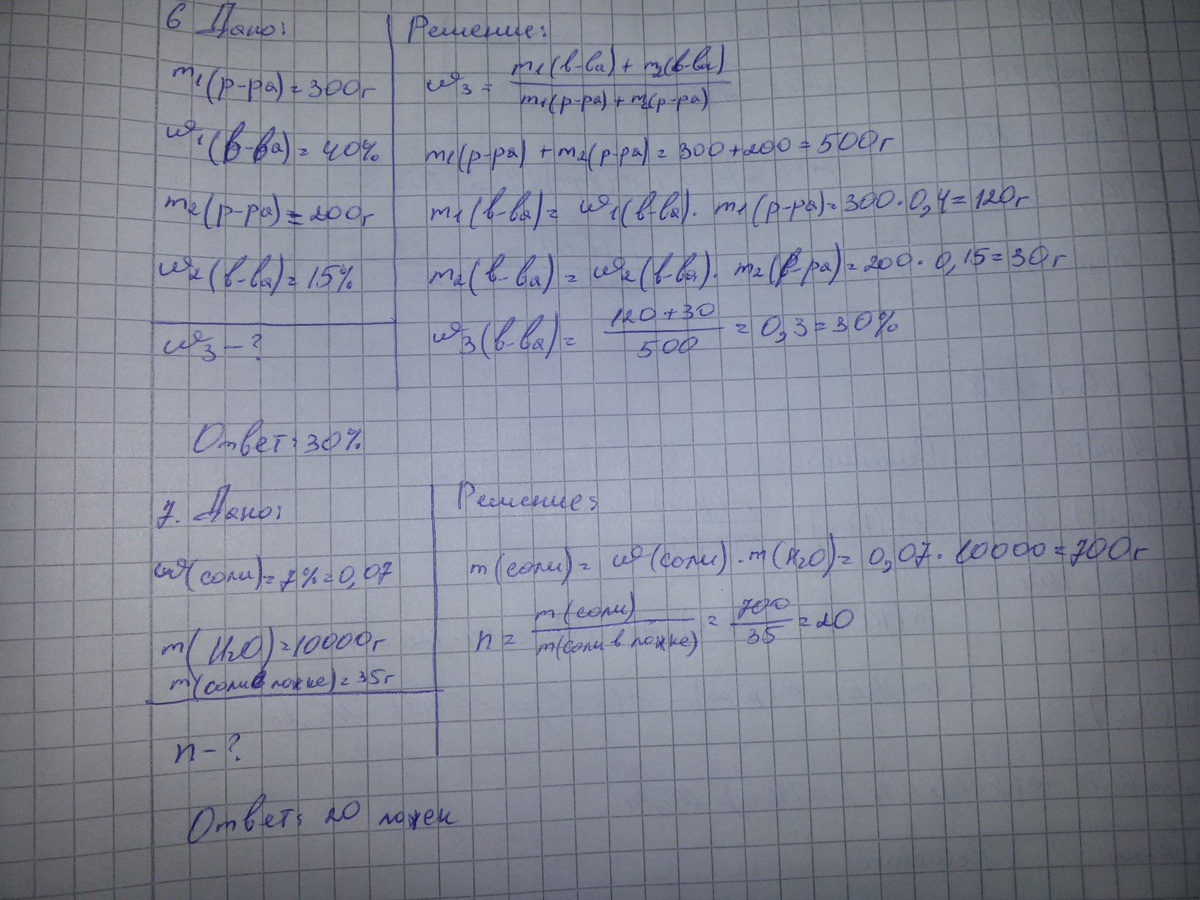 6 Дано:
m1(р-ра)=300г
ω1(в-ва)=40%
m2(р-ра)=200г
ω2(в-ва)=15%
ω3-?
Решение:
ω3 = m1(в-ва)+m2(в-ва) / m1(р-ра)+m2(р-ра)
m1(р-ра)+m2(р-ра)=300+200=500г
m1(в-ва)= ω1(в-ва)· m1(р-ра)=300·0,4=120г
m2(в-ва)= ω2(в-ва)· m2(р-ра)=200·0,15=30г
ω3(в-ва)= 120+30 / 500 = 0,3=30%
Ответ: 30%
7. Дано:
ω(соли)=7%=0,07
m(H2O)=10000г
m(соли в ложке)=35г
n-?
Решение:
m(соли)= ω(соли)·m(H2O)= 0,07·10000=700г
n= m(соли) / m(соли в ложке) = 700 / 35 =20
Ответ: 20 ложек